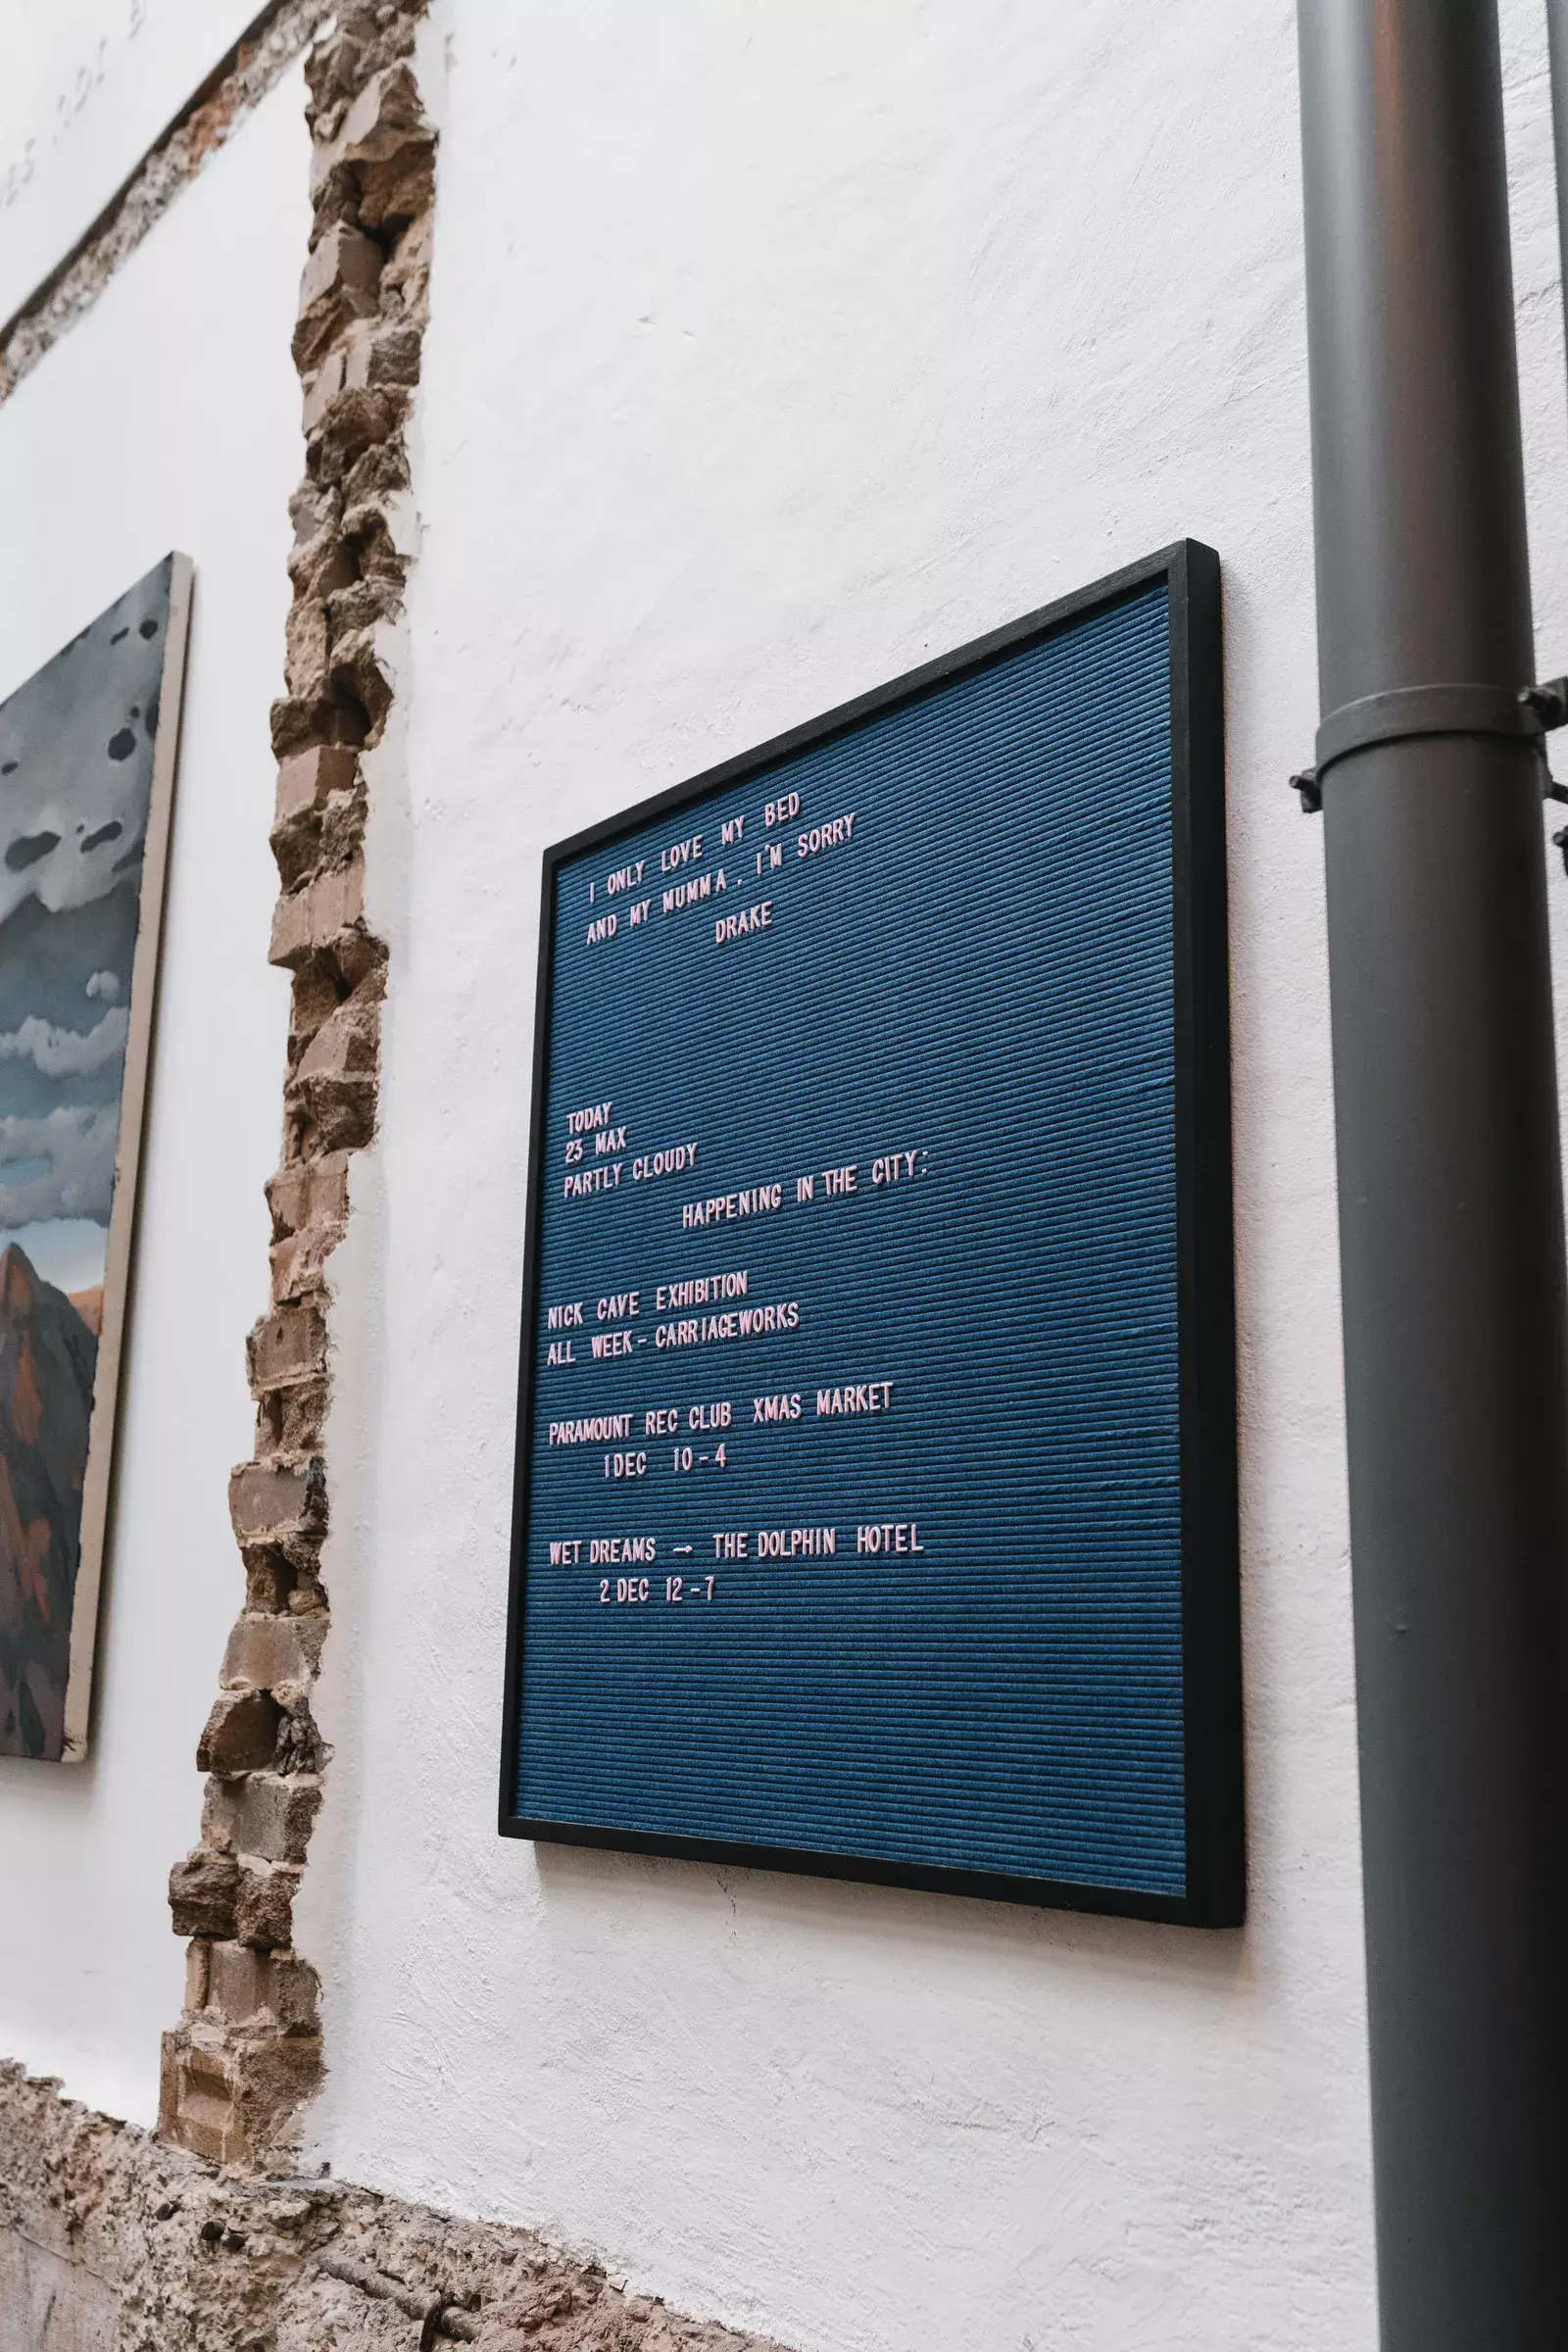 I ONLY LOVE MY BED
AND MY MUMMA. I'M SORRY
DRAKE
TODAY
23 MAX
PARTLY CLOUDY
HAPPENING IN THE CITY:
NICK CAVE EXHIBITION
ALL WEEK - CARRIAGEWORKS
PARAMOUNT REC CLUB XMAS MARKET
1 DEC 10-4
WET DREAMS → THE DOLPHIN HOTEL
2 DEC 12-7